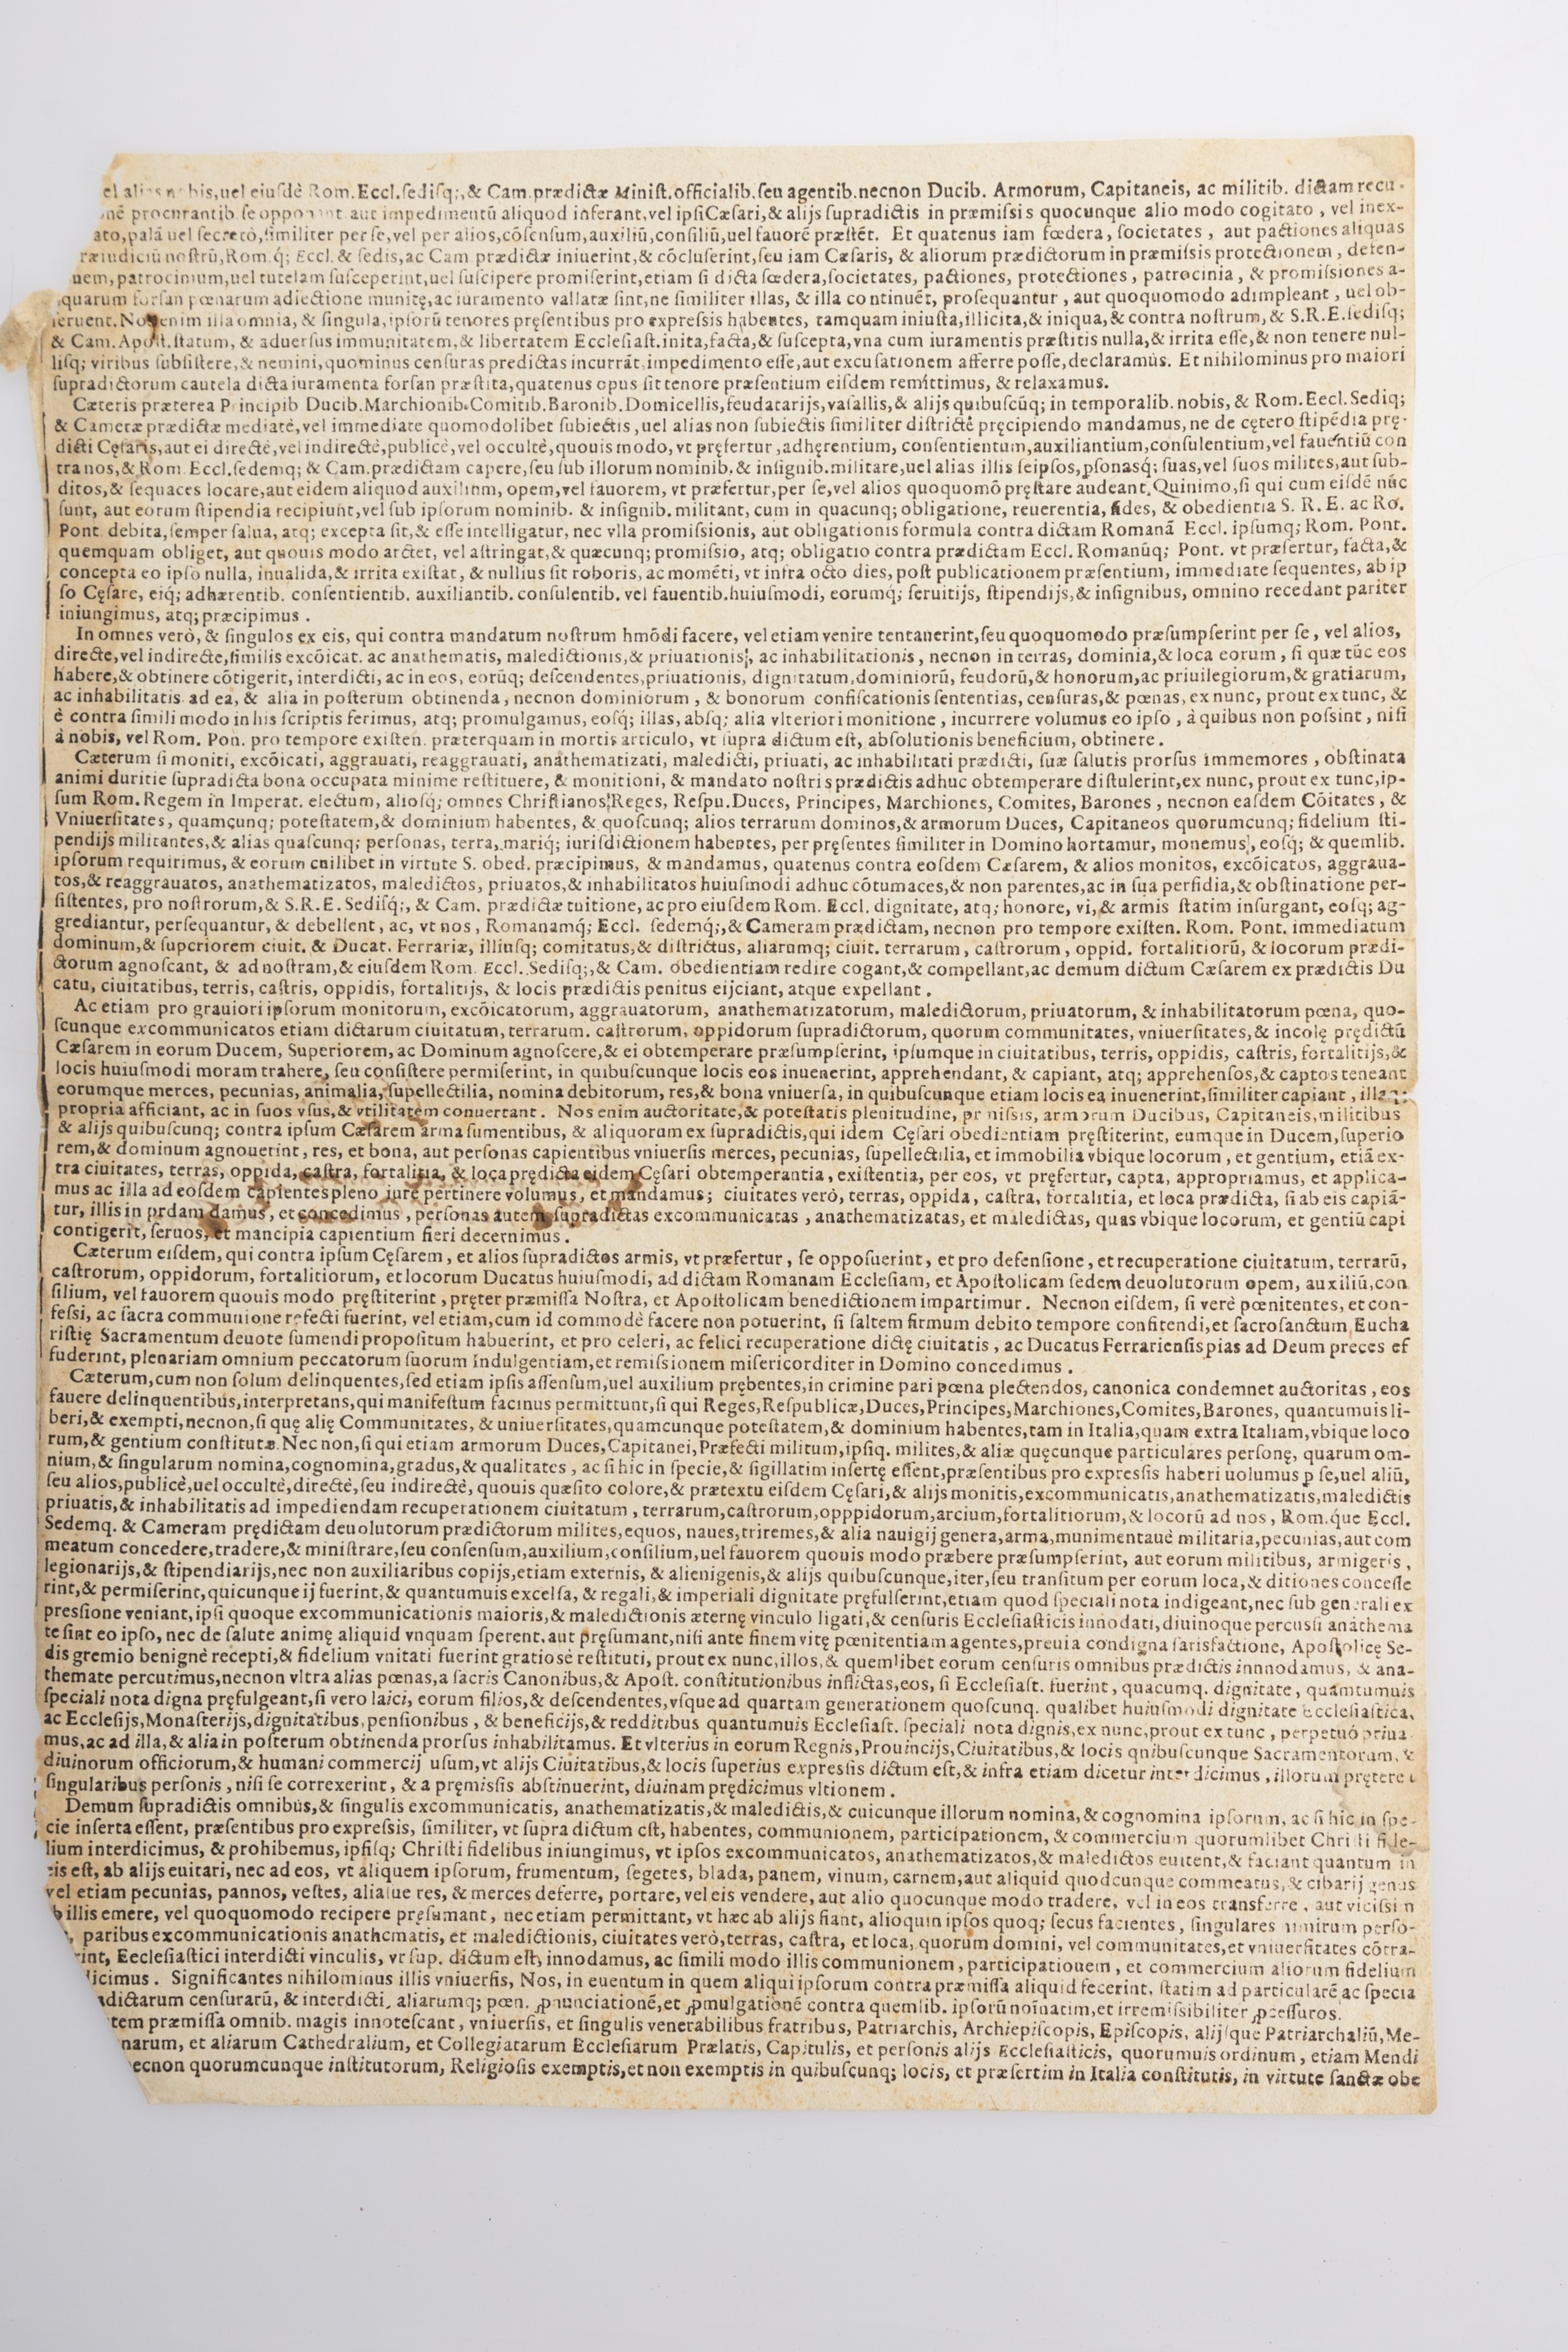 el alias nobis,uel eiuſdē Rom.Eccl.ſediſq;,& Cam.prædictæ Miniſt.officialib.ſeu agentib.necnon Ducib. Armorum, Capitaneis, ac militib. dictam recu-
nē procurantib.ſe opponant aut impedimentū aliquod inferant,vel ipſi Cæſari,& alijs ſupradictis in præmiſsis quocunque alio modo cogitato , vel inex-
ato,palā uel ſecretò,ſimiliter per ſe,vel per alios,cōſenſum,auxiliū,conſiliū,uel fauorē præſtēt. Et quatenus iam fœdera, ſocietates , aut pactiones aliquas
ræiudiciū noſtrū,Rom.q́; Eccl.& ſedis,ac Cam.prædictæ iniuerint,& cōcluſerint,ſeu iam Cæſaris, & aliorum prædictorum in præmiſsis protectionem , defen-
uem,patrocinium,uel tutelam ſuſceperint,uel ſuſcipere promiſerint,etiam ſi dicta fœdera,ſocietates, pactiones, protectiones , patrocinia , & promiſsiones a-
quarum forſan pœnarum adiectione munitę,ac iuramento vallatæ ſint,ne ſimiliter illas, & illa continuēt, proſequantur , aut quoquomodo adimpleant , uel ob-
ſeruent.Nos enim illa omnia, & ſingula,ipſorū tenores pręſentibus pro expreſsis habentes, tamquam iniuſta,illicita,& iniqua,& contra noſtrum, & S.R.E.ſediſq;
& Cam.Apoſt.ſtatum, & aduerſus immunitatem,& libertatem Eccleſiaſt.inita,facta,& ſuſcepta,vna cum iuramentis præſtitis nulla,& irrita eſſe,& non tenere nul-
liſq; viribus ſubſiſtere,& nemini,quominus cenſuras predictas incurrāt,impedimento eſſe,aut excuſationem afferre poſſe,declaramus. Et nihilominus pro maiori
ſupradictorum cautela dicta iuramenta forſan præſtita,quatenus opus ſit tenore præſentium eiſdem remittimus, & relaxamus.
Cæteris præterea Principib Ducib.Marchionib.Comitib.Baronib.Domicellis,feudatarijs,vaſallis,& alijs quibuſcūq; in temporalib.nobis, & Rom.Eccl.Sediq;
& Cameræ prædictæ mediatè,vel immediate quomodolibet ſubiectis ,uel alias non ſubiectis ſimiliter diſtrictè pręcipiendo mandamus,ne de cętero ſtipēdia prę-
dicti Cęſaris,aut ei directè,vel indirectè,publicè,vel occultè,quouis modo, vt pręfertur ,adhęrentium, conſentientum,auxiliantium,conſulentium,vel fauentiū con
tra nos,& Rom. Eccl.ſedemq; & Cam.prædictam capere,ſeu ſub illorum nominib.& inſignib.militare,uel alias illis ſeipſos,pſonasq́; ſuas,vel ſuos milites,aut ſub-
ditos,& ſequaces locare,aut eidem aliquod auxilium, opem,vel fauorem, vt præfertur,per ſe,vel alios quoquomō pręſtare audeant.Quinimo,ſi qui cum eiſdē nūc
ſunt, aut eorum ſtipendia recipiunt,vel ſub ipſorum nominib. & inſignib.militant, cum in quacunq; obligatione, reuerentia, fides, & obedientia S. R. E. ac Ro.
Pont. debita,ſemper ſalua, atq; excepta ſit,& eſſe intelligatur, nec vlla promiſsionis, aut obligationis formula contra dictam Romanā Eccl. ipſumq; Rom. Pont.
quemquam obliget, aut quouis modo arctet, vel aſtringat,& quæcunq; promiſsio, atq; obligatio contra prædictam Eccl. Romanūq; Pont. vt præfertur, facta,&
concepta eo ipſo nulla, inualida,& irrita exiſtat, & nullius ſit roboris, ac momēti, vt infra octo dies, poſt publicationem præſentium, immediate ſequentes, ab ip
ſo Cęſare, eiq́; adhærentib. conſentientib. auxiliantib. conſulentib. vel fauentib.huiuſmodi, eorumq; ſeruitijs, ſtipendijs,& inſignibus, omnino recedant pariter
iniungimus, atq; præcipimus .
In omnes verò, & ſingulos ex eis, qui contra mandatum noſtrum hmōdi facere, vel etiam venire tentauerint,ſeu quoquomodo præſumpſerint per ſe , vel alios,
directe,vel indirecte,ſimilis excōicat. ac anathematis, maledictionis,& priuationis, ac inhabilitationis , necnon in terras, dominia,& loca eorum , ſi quæ tūc eos
habere,& obtinere cōtigerit, interdicti, ac in eos, eorūq; deſcendentes,priuationis, dignitatum,dominiorū, feudorū,& honorum,ac priuilegiorum,& gratiarum,
ac inhabilitatis ad ea, & alia in poſterum obtinenda , necnon dominiorum , & bonorum confiſcationis ſententias, cenſuras,& pœnas, ex nunc, prout ex tunc, &
è contra ſimili modo in his ſcriptis ferimus, atq; promulgamus, eoſq́; illas, abſq; alia vlteriori monitione , incurrere volumus eo ipſo , à quibus non poſsint , niſi
à nobis, vel Rom. Pon. pro tempore exiſten. præterquam in mortis articulo, vt ſupra dictum eſt, abſolutionis beneficium, obtinere .
Cæterum ſi moniti, excōicati, aggrauati, reaggrauati, anathematizati, maledicti, priuati, ac inhabilitati prædicti, ſuæ ſalutis prorſus immemores , obſtinata
animi duritie ſupradicta bona occupata minime reſtituere, & monitioni, & mandato noſtris prædictis adhuc obtemperare diſtulerint,ex nunc, prout ex tunc,ip-
ſum Rom. Regem in Imperat. electum, alioſq́; omnes Chriſtianos Reges, Reſpu.Duces, Principes, Marchiones, Comites, Barones , necnon eaſdem Cōitates , &
Vniuerſitates, quamcunq; poteſtatem,& dominium habentes, & quoſcunq; alios terrarum dominos,& armorum Duces, Capitaneos quorumcunq; fidelium ſti-
pendijs militantes,& alias quaſcunq; perſonas, terra, mariq́; iuriſdictionem habentes, per pręſentes ſimiliter in Domino hortamur, monemus , eoſq; & quemlib.
ipſorum requirimus, & eorum cuilibet in virtute S. obed. præcipimus, & mandamus, quatenus contra eoſdem Cæſarem, & alios monitos, excōicatos, aggraua-
tos,& reaggrauatos, anathematizatos, maledictos, priuatos,& inhabilitatos huiuſmodi adhuc cōtumaces,& non parentes,ac in ſua perfidia,& obſtinatione per-
ſiſtentes, pro noſtrorum,& S.R.E.Sediſq́;, & Cam. prædictæ tuitione, ac pro eiuſdem Rom. Eccl. dignitate, atq; honore, vi,& armis ſtatim inſurgant, eoſq; ag-
grediantur, perſequantur, & debellent, ac, vt nos , Romanamq́; Eccl. ſedemq́;,& Cameram prædictam, necnon pro tempore exiſten. Rom. Pont. immediatum
dominum,& ſuperiorem ciuit. & Ducat. Ferrariæ, illiuſq; comitatus,& diſtrictus, aliarumq; ciuit. terrarum , caſtrorum , oppid. fortalitiorū, & locorum prædi-
ctorum agnoſcant, & ad noſtram,& eiuſdem Rom. Eccl. Sediſq;,& Cam. obedientiam redire cogant,& compellant,ac demum dictum Cæſarem ex prædictis Du
catu, ciuitatibus, terris, caſtris, oppidis, fortalitijs, & locis prædictis penitus eijciant, atque expellant .
Ac etiam pro grauiori ipſorum monitorum, excōicatorum, aggrauatorum, anathematizatorum, maledictorum, priuatorum, & inhabilitatorum pœna, quo-
ſcunque excommunicatos etiam dictarum ciuitatum, terrarum. caſtrorum, oppidorum ſupradictorum, quorum communitates, vniuerſitates,& incolę prędictū
Cæſarem in eorum Ducem, Superiorem, ac Dominum agnoſcere,& ei obtemperare præſumpſerint, ipſumque in ciuitatibus, terris, oppidis, caſtris, fortalitijs,&
locis huiuſmodi moram trahere, ſeu conſiſtere permiſerint, in quibuſcunque locis eos inuenerint, apprehendant, & capiant, atq; apprehenſos,& captos teneant
eorumque merces, pecunias, animalia, ſupellectilia, nomina debitorum, res,& bona vniuerſa, in quibuſcunque etiam locis ea inuenerint,ſimiliter capiant , illaq;
propria afficiant, ac in ſuos vſus,& vtilitatem conuertant . Nos enim auctoritate,& poteſtatis plenitudine, præmiſsis, armorum Ducibus, Capitaneis,militibus
& alijs quibuſcunq; contra ipſum Cæſarem arma ſumentibus, & aliquorum ex ſupradictis,qui idem Cęſari obedientiam pręſtiterint, eumque in Ducem,ſuperio
rem,& dominum agnouerint , res, et bona, aut perſonas capientibus vniuerſis merces, pecunias, ſupellectilia, et immobilia vbique locorum , et gentium, etiā ex-
tra ciuitates, terras, oppida, caſtra, fortalitia, & loca prędicta eidem Cęſari obtemperantia, exiſtentia, per eos, vt pręfertur, capta, appropriamus, et applica-
mus ac illa ad eoſdem capientes pleno iure pertinere volumus, et mandamus; ciuitates verò, terras, oppida, caſtra, fortalitia, et loca prædicta, ſi ab eis capiā-
tur, illis in prdam damus, et concedimus , perſonas autem ſupradictas excommunicatas , anathematizatas, et maledictas, quas vbique locorum, et gentiū capi
contigerit, ſeruos, et mancipia capientium fieri decernimus .
Cæterum eiſdem, qui contra ipſum Cęſarem, et alios ſupradictos armis, vt præfertur , ſe oppoſuerint, et pro defenſione , et recuperatione ciuitatum, terrarū,
caſtrorum, oppidorum, fortalitiorum, et locorum Ducatus huiuſmodi, ad dictam Romanam Eccleſiam, et Apoſtolicam ſedem deuolutorum opem, auxiliū,con
ſilium, vel fauorem quouis modo pręſtiterint , pręter præmiſſa Noſtra, et Apoſtolicam benedictionem impartimur . Necnon eiſdem, ſi verè pœnitentes, et con-
feſsi, ac ſacra communione refecti fuerint, vel etiam,cum id commodè facere non potuerint, ſi ſaltem firmum debito tempore confitendi,et ſacroſanctum Eucha
riſtię Sacramentum deuote ſumendi propoſitum habuerint, et pro celeri, ac felici recuperatione dictę ciuitatis , ac Ducatus Ferrarienſis pias ad Deum preces ef
fuderint, plenariam omnium peccatorum ſuorum Indulgentiam,et remiſsionem miſericorditer in Domino concedimus .
Cæterum,cum non ſolum delinquentes,ſed etiam ipſis aſſenſum,uel auxilium prębentes,in crimine pari pœna plectendos, canonica condemnet auctoritas , eos
fauere delinquentibus,interpretans,qui manifeſtum facinus permittunt,ſi qui Reges,Reſpublicæ,Duces,Principes,Marchiones,Comites,Barones, quantumuis li-
beri,& exempti,necnon,ſi quę alię Communitates, & uniuerſitates,quamcunque poteſtatem,& dominium habentes,tam in Italia,quam extra Italiam,vbique loco
rum,& gentium conſtitutæ.Nec non,ſi qui etiam armorum Duces,Capitanei,Præfecti militum,ipſiq. milites,& aliæ quęcunque particulares perſonę, quarum om-
nium,& ſingularum nomina,cognomina,gradus,& qualitates , ac ſi hic in ſpecie,& ſigillatim inſertę eſſent,præſentibus pro expreſsis haberi uolumus p ſe,uel aliū,
ſeu alios,publicè,uel occultè,directè,ſeu indirectè, quouis quæſito colore,& prætextu eiſdem Cęſari,& alijs monitis,excommunicatis,anathematizatis,maledictis
priuatis,& inhabilitatis ad impediendam recuperationem ciuitatum , terrarum,caſtrorum,opppidorum,arcium,fortalitiorum,& locorū ad nos , Rom.que Eccl.
Sedemq. & Cameram prędictam deuolutorum prædictorum milites,equos, naues,triremes,& alia nauigij genera,arma,munimentauè militaria,pecunias,aut com
meatum concedere,tradere,& miniſtrare,ſeu conſenſum,auxilium,conſilium,uel fauorem quouis modo præbere præſumpſerint, aut eorum militibus, armigeris ,
legionarijs,& ſtipendiarijs,nec non auxiliaribus copijs,etiam externis, & alienigenis,& alijs quibuſcunque,iter,ſeu tranſitum per eorum loca,& ditiones conceſſe
rint,& permiſerint,quicunque ij fuerint,& quantumuis excelſa, & regali,& imperiali dignitate præfulſerint,etiam quod ſpeciali nota indigeant,nec ſub generali ex
preſsione veniant,ipſi quoque excommunicationis maioris,& maledictionis æternę vinculo ligati,& cenſuris Eccleſiaſticis innodati,diuinoque percuſsi anathema
te ſint eo ipſo, nec de ſalute animę aliquid vnquam ſperent,aut pręſumant,niſi ante finem vitę pœnitentiam agentes,preuia condigna ſatisfactione, Apoſtolicę Se-
dis gremio benignè recepti,& fidelium vnitati fuerint gratiosè reſtituti, prout ex nunc,illos,& quemlibet eorum cenſuris omnibus prædictis innnodamus, & ana-
themate percutimus,necnon vltra alias pœnas,a ſacris Canonibus,& Apoſt. conſtitutionibus inflictas,eos, ſi Eccleſiaſt. fuerint , quacumq. dignitate , quamtumuis
ſpeciali nota digna pręfulgeant,ſi vero laici, eorum filios,& deſcendentes,vſque ad quartam generationem quoſcunq. qualibet huiuſmodi dignitate Eccleſiaſtica,
ac Eccleſijs,Monaſterijs,dignitatibus,penſionibus , & beneficijs,& redditibus quantumuis Eccleſiaſt. ſpeciali nota dignis,ex nunc,prout ex tunc , perpetuó priua
mus,ac ad illa,& alia in poſterum obtinenda prorſus inhabilitamus. Et vlterius in eorum Regnis,Prouincijs,Ciuitatibus,& locis quibuſcunque Sacramentorum, &
diuinorum officiorum,& humani commercij uſum,vt alijs Ciuitatibus,& locis ſuperius expreſsis dictum eſt,& infra etiam dicetur interdicimus , illorum pretere
ſingularibus perſonis , niſi ſe correxerint , & a pręmiſsis abſtinuerint, diuinam prędicimus vltionem .
Demum ſupradictis omnibus,& ſingulis excommunicatis, anathematizatis,& maledictis,& cuicunque illorum nomina,& cognomina ipſorum, ac ſi hic in ſpe-
cie inſerta eſſent, præſentibus pro expreſsis, ſimiliter, vt ſupra dictum eſt, habentes, communionem, participationem, & commercium quorumlibet Chriſti fide-
lium interdicimus, & prohibemus, ipſiſq; Chriſti fidelibus iniungimus, vt ipſos excommunicatos, anathematizatos,& maledictos euitent,& faciant quantum in
eis eſt, ab alijs euitari, nec ad eos, vt aliquem ipſorum, frumentum, ſegetes, blada, panem, vinum, carnem,aut aliquid quodcunque commeatus,& cibarij genus
vel etiam pecunias, pannos, veſtes, aliaſue res, & merces deferre, portare, vel eis vendere, aut alio quocunque modo tradere, vel in eos transferre , aut viciſsi n
b illis emere, vel quoquomodo recipere pręſumant , nec etiam permittant, vt hæc ab alijs fiant, alioquin ipſos quoq; ſecus facientes , ſingulares nimirum perſo-
, paribus excommunicationis anathematis, et maledictionis, ciuitates verò,terras, caſtra, et loca, quorum domini, vel communitates,et vniuerſitates cōtra-
rint, Eccleſiaſtici interdicti vinculis, vt ſup. dictum eſt, innodamus, ac ſimili modo illis communionem, participationem , et commercium aliorum fidelium
dicimus . Significantes nihilominus illis vniuerſis, Nos, in euentum in quem aliqui ipſorum contra præmiſſa aliquid fecerint, ſtatim ad particularē ac ſpecia
dictarum cenſurarū, & interdicti, aliarumq; pœn. pnunciationē,et pmulgationē contra quemlib. ipſorū noīnatim,et irremiſsibiliter pceſſuros.
tem præmiſſa omnib. magis innoteſcant , vniuerſis, et ſingulis venerabilibus fratribus, Patriarchis, Archiepiſcopis, Epiſcopis, alijſque Patriarchaliū,Me-
narum, et aliarum Cathedralium, et Collegiatarum Eccleſiarum Prælatis, Capitulis, et perſonis alijs Eccleſiaſticis, quorumuis ordinum , etiam Mendi
ecnon quorumcunque inſtitutorum, Religioſis exemptis,et non exemptis in quibuſcunq; locis, et præſertim in Italia conſtitutis, in virtute ſanctæ obe